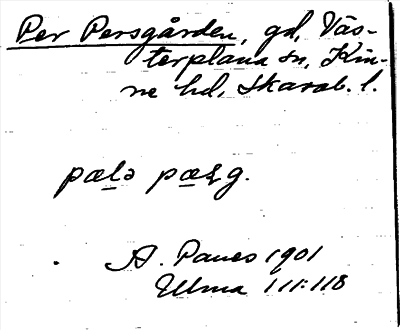 Per Persgården, gd, Väs-
terplana sn, Kin-
ne hd, Skarab. l.
pælə pæǥg.
A. Panes 1901
Ulma 111:118